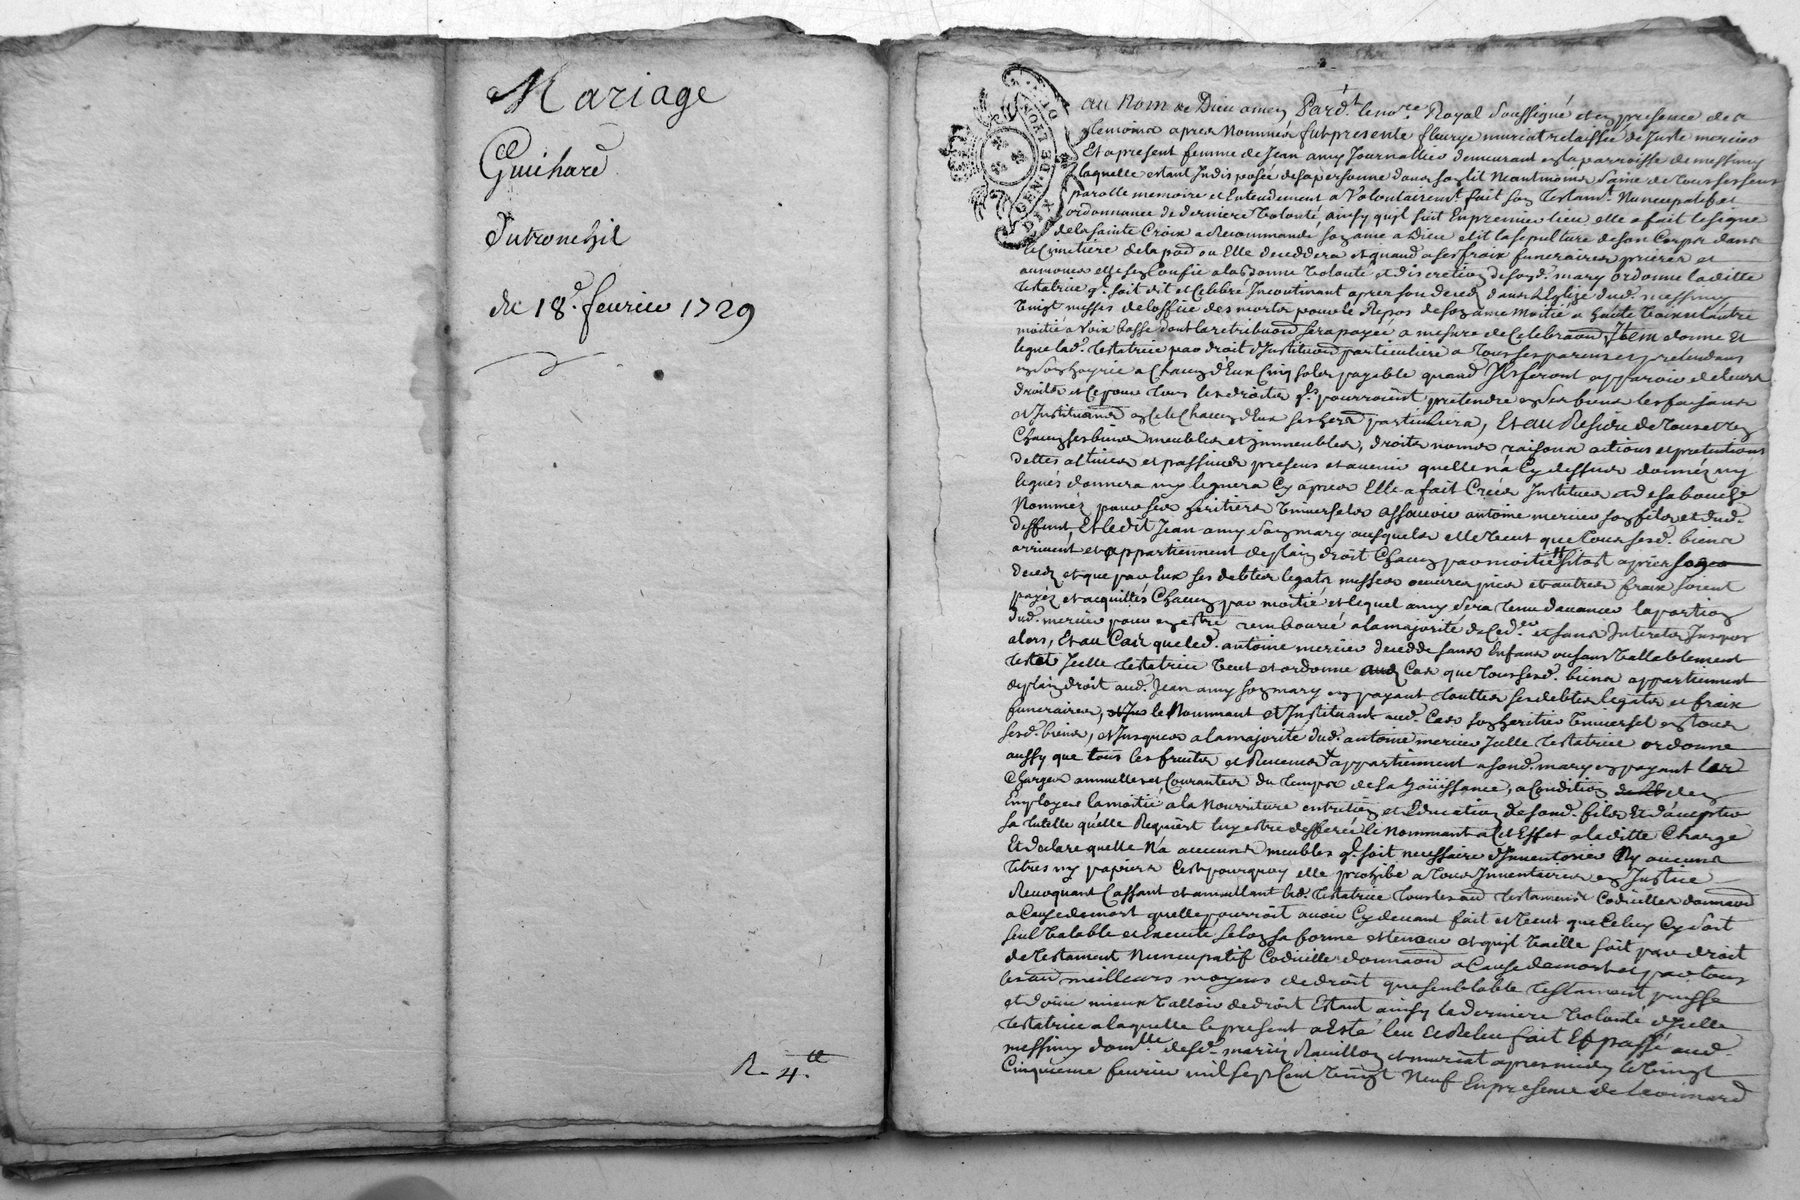 Mariage
Guichard
Dutronchil
du 18.e feurier 1729
R- 4.tt
GEN. DE LYON
DIX DE
au Nom de Dieu amen Pard.t le no.re Royal soussigné et en presence des
temoins apres Nommés fut presente fleurye muriat relaissée de Juste mercier
Et apresent femme de Jean amy Journallier demeurant en la parroisse de messimy
laquelle estant Indisposée de sa personne dans son lit Neantmoins saine de tous ses sens
parolle memoire et Entendement a Volontairem.t fait son testam.t Nuncupatif et
ordonnance de derniere Volonté ainsy quil suit En premier lieu elle a fait le signe
de la sainte Croix a Recommandé son ame a Dieu elit la sepulture de son Corps dans
le Cimetiére de la par. ou Elle deceddera et quand a ses fraix funeraires prieres et
aumones elle sen Confie a la bonne Volonté et discretion de son d. mary ordonne laditte
testatrice q.l soit dit et Celebré Incontinant apres son deced dans l'Eglise dud. messimy
Vingt messes de l'office des morts pour le Repos de son ame moitié a haute Voix et l'autre
moitié a Voix basse dont la retribuon sera payée a mesure de Celebraon, Item donne Et
legue lad. testatrice par droit d'Instituon particuliere a tous ses parens et pretendans
en son hoyrie a Chacun d'Eux Cinq sols payable quand Ils feront apparoir de leurs
droits et Ce pour tous les droits q.ls pourroient pretendre en ses biens les faisans
et Instituans en Cele Chacun d'Eux ses hers particuliers, Et au Residu de tous et un
Chacun ses biens meubles et immeubles, droits noms raisons actions et pretentions
dettes actives et passives presens et avenir quelle n'a Cy dessus donnés ny
legués donnera ny leguera Cy apres Elle a fait Créer Instituer et de sa bouche
Nommés pour ses heritiers Universels assavoir antoine mercier son fils et dud.
deffunt, Et ledit Jean amy son mary ausquels elle Veut que tous sesd. biens
arrivent et appartiennent de plain droit Chacun par moitié sitost apres son
deced et que par Eux ses debtes legats messes oeuvres pies et autres fraix soient
payés et acquittés Chacun par moitié et lequel amy sera tenu d'avancer la portion
dud. mercier pour en estre remboursé a la majorité de Ced.er et sans Interets Jusques
alors, Et au Cas que led. antoine mercier decedde sans Enfans ou sans Vallablement
tester Icelle testatrice Veut et ordonne aud. Cas que tous sesd. biens appartiennent
de plain droit aud. Jean amy son mary en payant touttes ses debtes legats et fraix
funeraires, le Nommant et Instituant aud. Cas son heritier Universel en tous
sesd. biens, et Jusques a la majorite dud. antoine mercier Icelle testatrice ordonne
aussy que tous les fruits et Revenus appartiennent a sond. mary en payant les
Charges annuelles et Courantes du temps de sa Joüissance, a Condition den
Employer la moitié a la Nourriture entretien et Education de sond. fils Et d'accepter
la tutelle qu'elle Requiert luy estre defferée le Nommant a Cet Effet a laditte Charge
Et declare quelle N'a aucuns meubles q.l soit necessaire d'Inventorier Ny aucuns
titres ny papiers C'est pourquoy elle prohibe a tous Inventaires en Justice
Revoquant Cassant et annullant lad. testatrice tous testamens Codicilles donnaon
a Cause de mort quelle pourroit avoir Cy devant fait et Veut que Celuy Cy soit
seul Valable et Executé selon sa forme et teneur et quil Vaille soit par droit
de testament Nuncupatif Codicille donnaon a Cause de mort et par tous
les meilleurs moyens de droit que semblable testament puisse
et doive mieux Valloir de droit Estant ainsy la derniere Volonté d'Icelle
testatrice a laquelle le present a Esté leu et Releu fait Et passé aud.
messimy domlle desd. mariés et muriat apres midy le Vingt
Cinquieme feurier mil sept Cent Vingt Neuf En presence de Leonnard